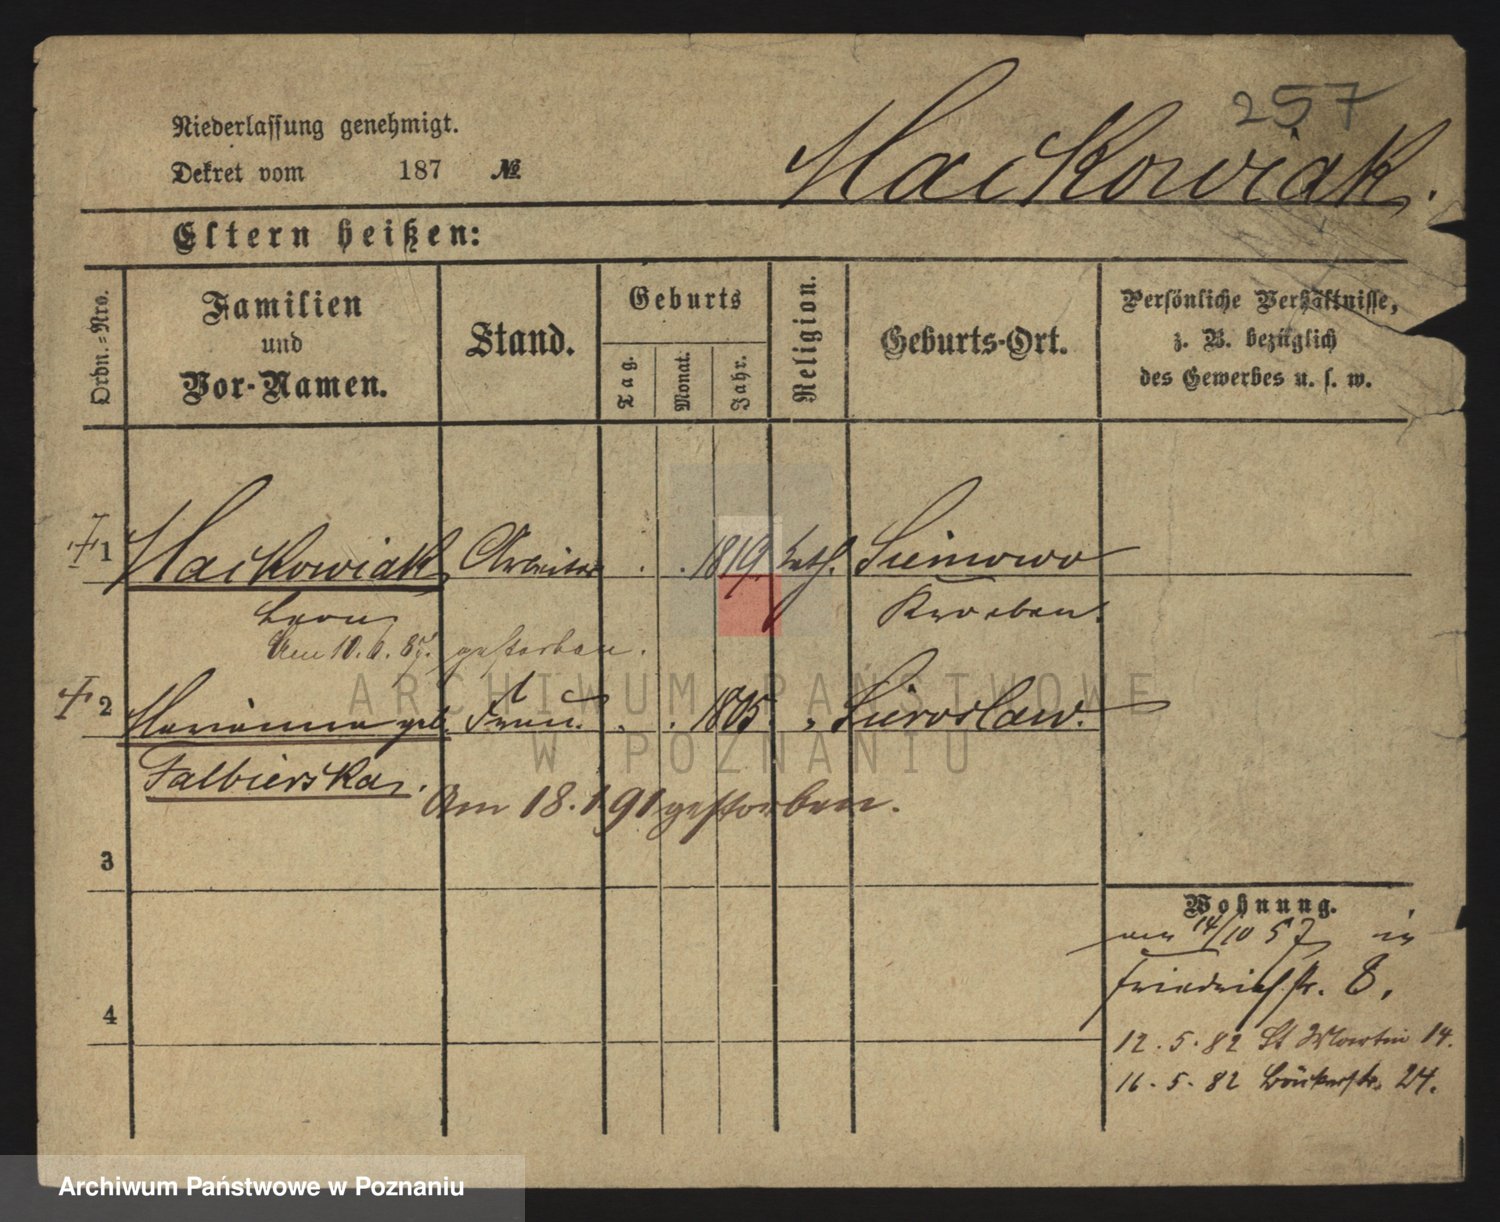 257
Niederlassung genehmigt.
Dekret vom 187 №
Maćkowiak.
Eltern heißen:
Ordn.-Nro.
Familien und Vor-Namen.
Stand.
Geburts
Tag.
Monat.
Jahr.
Religion.
Geburts-Ort.
Persönliche Verhältnisse,
z. B. bezüglich
des Gewerbes u. s. w.
1 Maćkowiak Arbeiter 1819. kath. Siemowo
Kroeben.
gestorben.
2 Marianna geb. Frau. 1805. „
Falbierska.
Am 18.1.91 gestorben.
3
Wohnung.
14/10 57 in
Friedrichstr. 8.
4
12.5.82 St Martin 14.
16.5.82 24.
ARCHIWUM PAŃSTWOWE
W POZNANIU
Archiwum Państwowe w Poznaniu